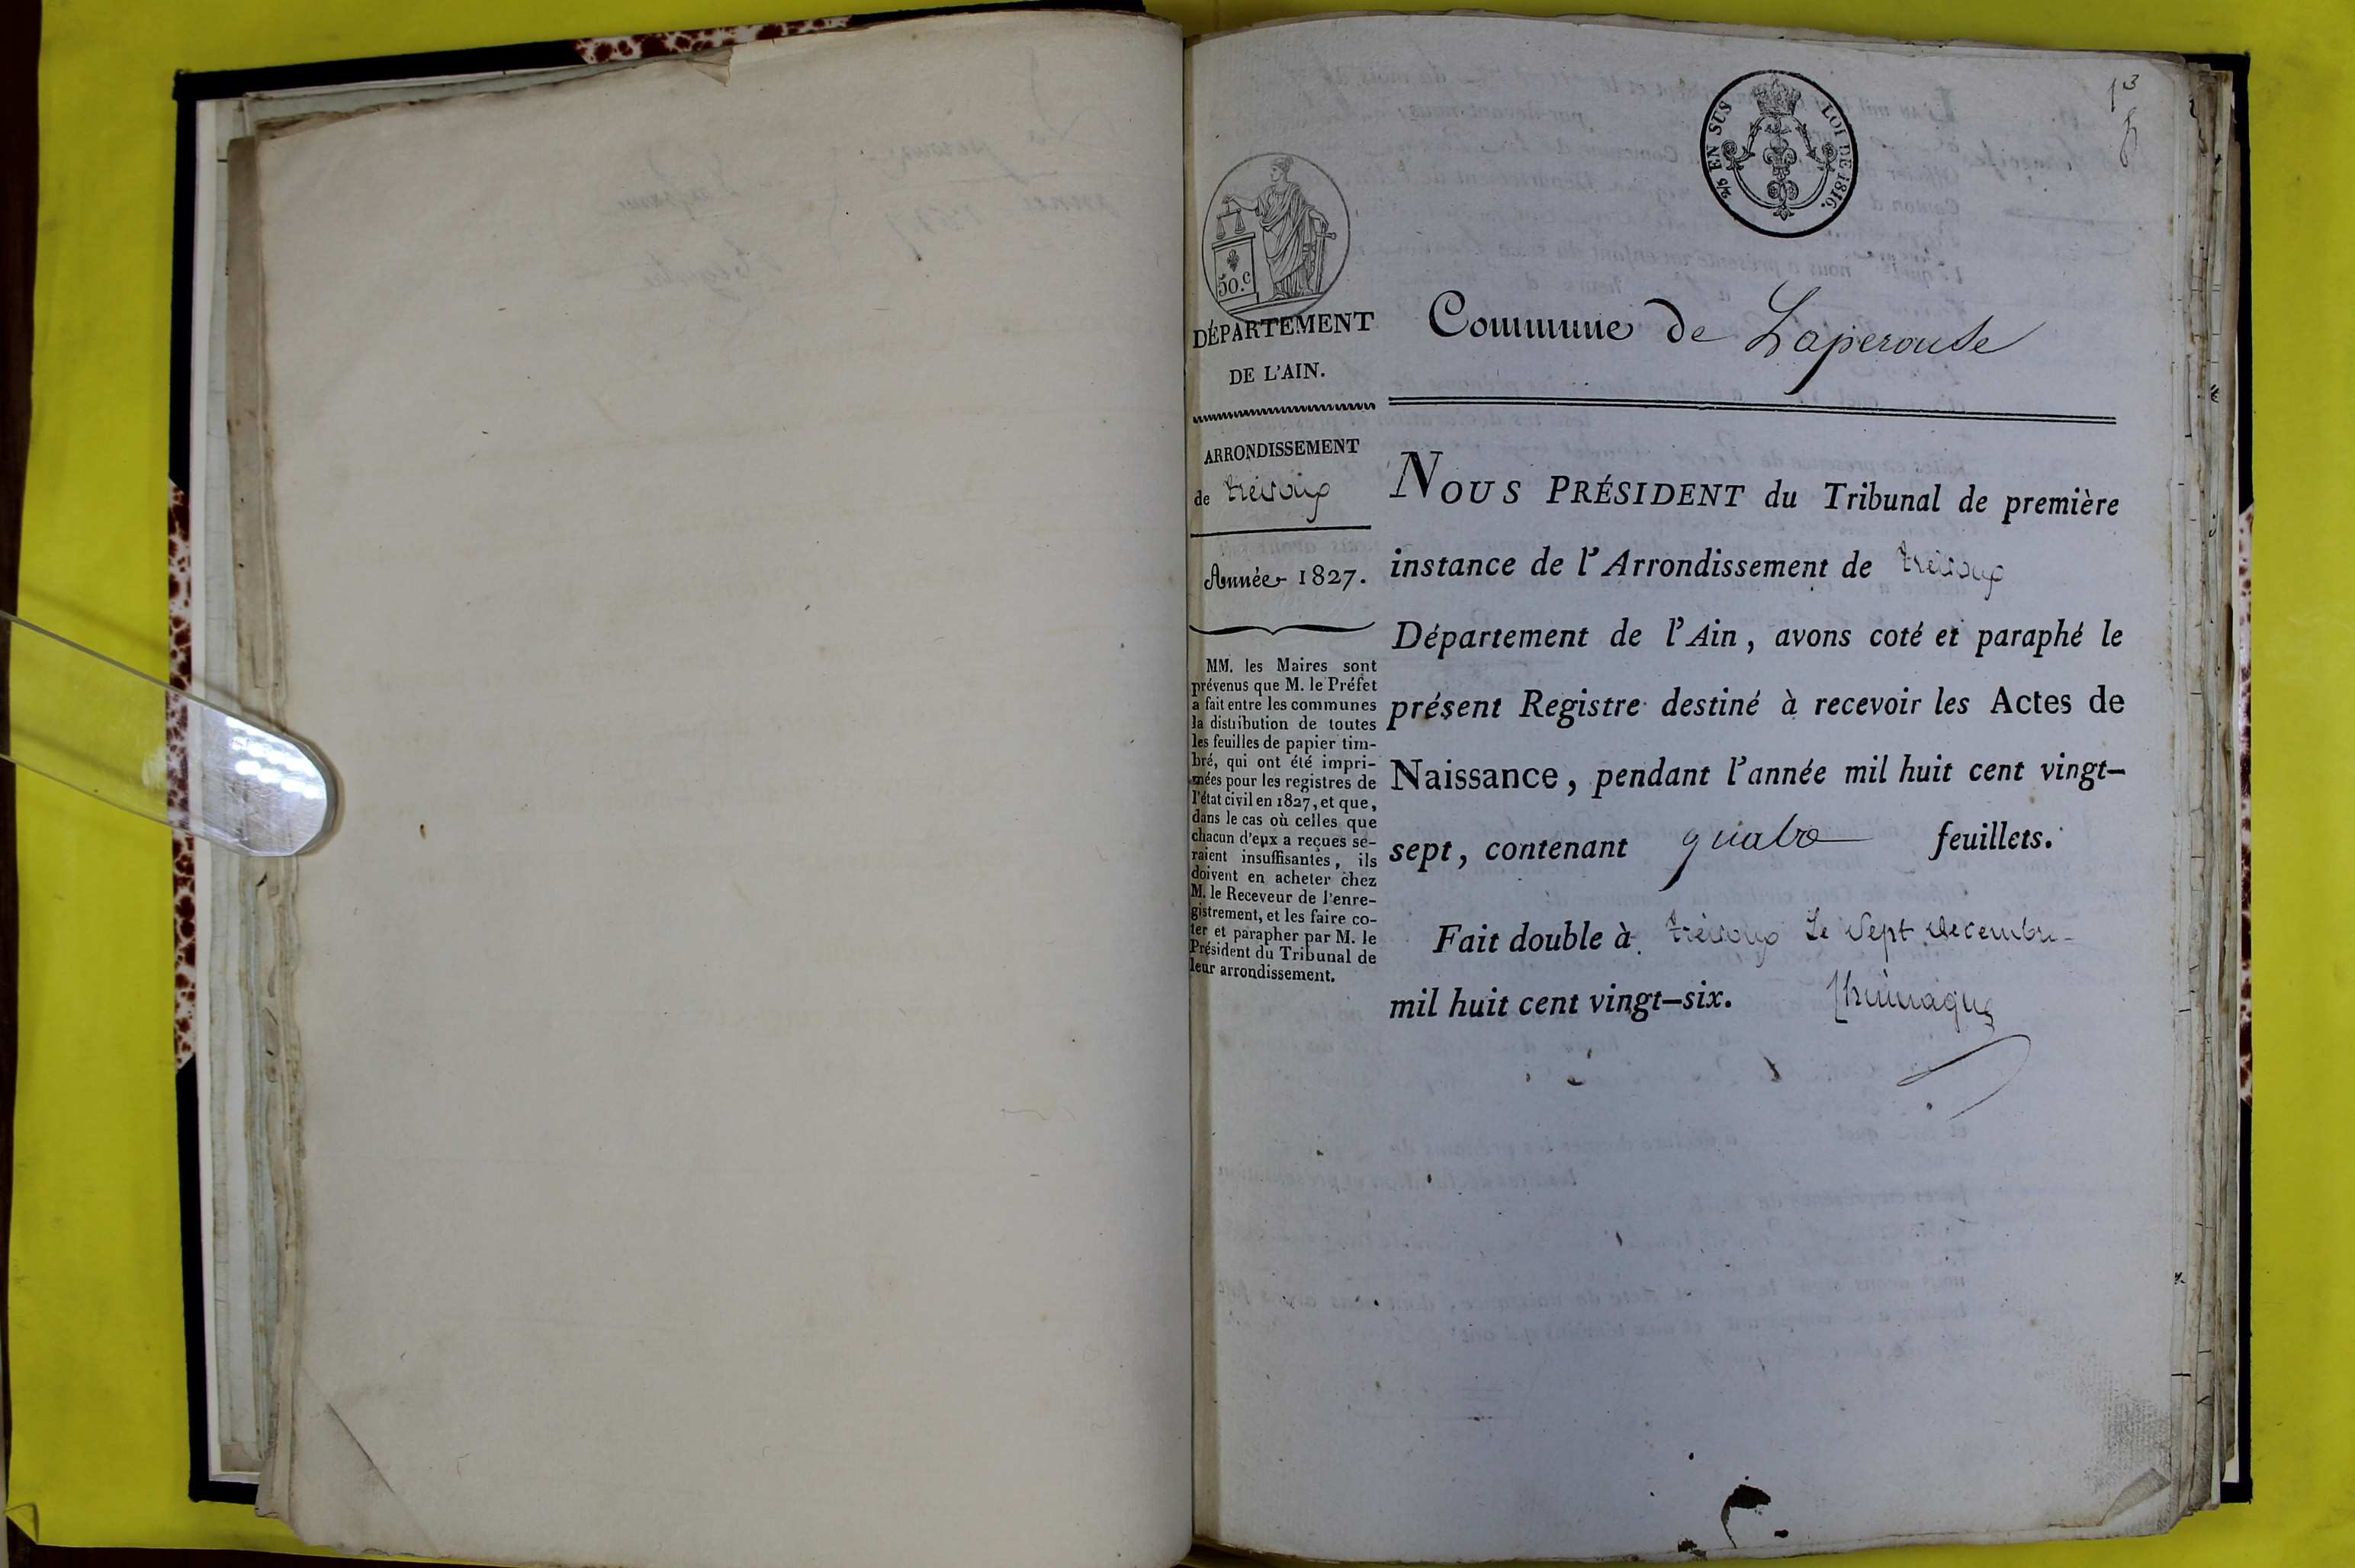 2/5 EN SUS LOI DE 1816.
50.c
DÉPARTEMENT
DE L'AIN.
ARRONDISSEMENT
de trévoux
Année 1827.
MM. les Maires sont
prévenus que M. le Préfet
a fait entre les communes
la distribution de toutes
les feuilles de papier tim-
bré, qui ont été impri-
mées pour les registres de
l'état civil en 1827, et que,
dans le cas où celles que
chacun d'eux a reçues se-
raient insuffisantes, ils
doivent en acheter chez
M. le Receveur de l'enre-
gistrement, et les faire co-
ter et parapher par M. le
Président du Tribunal de
leur arrondissement.
Commune de Laperouse
NOUS PRÉSIDENT du Tribunal de première
instance de l'Arrondissement de trévoux
Département de l'Ain, avons coté et paraphé le
présent Registre destiné à recevoir les Actes de
Naissance, pendant l'année mil huit cent vingt-
sept, contenant quatre feuillets.
Fait double à trévoux Le Sept decembre
mil huit cent vingt-six.